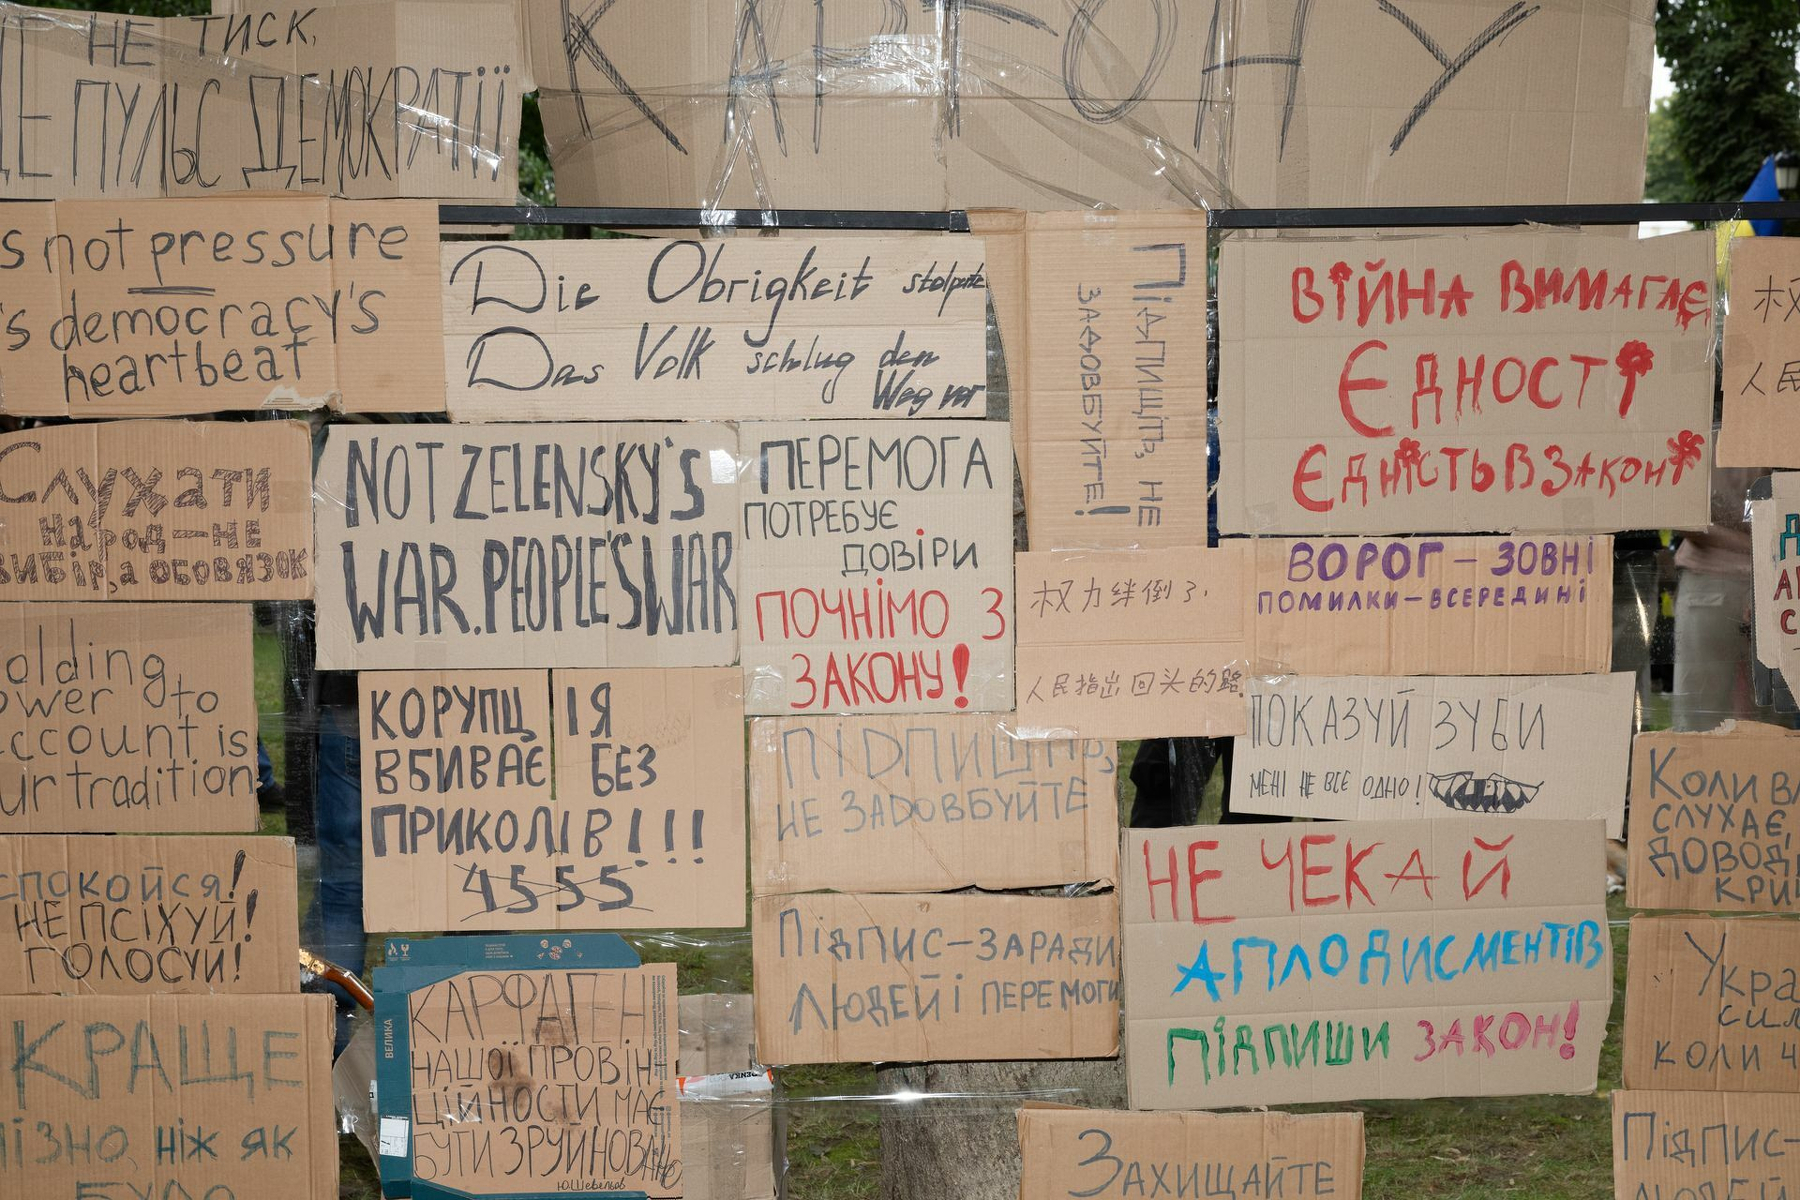 НЕ ТИСК,
ЦЕ ПУЛЬС ДЕМОКРАТІЇ
КАРТОНУ
s not pressure
's democracy's
heartbeat
Die Obrigkeit stolperte
Das Volk schlug den
Weg vor
Підпишіть, не
задовбуйте!
ВІЙНА ВИМАГАЄ
ЄДНОСТІ
ЄДНІСТЬ В ЗАКОНІ
权
人民
Слухати
народ — не
вибір, а обов'язок
NOT ZELENSKY'S
WAR. PEOPLE'S WAR
ПЕРЕМОГА
ПОТРЕБУЄ
ДОВІРИ
ПОЧНІМО З
ЗАКОНУ!
权力绊倒了.
人民指出回头的路
ВОРОГ — ЗОВНІ
ПОМИЛКИ — ВСЕРЕДИНІ
olding
ower to
ccount is
ur tradition
КОРУПЦІЯ
ВБИВАЄ БЕЗ
ПРИКОЛІВ!!!
4555
ПІДПИШІТЬ,
НЕ ЗАДОВБУЙТЕ
ПОКАЗУЙ ЗУБИ
МЕНІ НЕ ВСЕ ОДНО!
Коли вл
слухає,
довод
кри
спокойся!
НЕ ПСІХУЙ!
ГОЛОСУЙ!
Підпис — заради
людей і перемоги
НЕ ЧЕКАЙ
АПЛОДИСМЕНТІВ
ПІДПИШИ ЗАКОН!
Укра
сил
коли ч
КРАЩЕ
пізно, ніж як
було
ВЕЛИКА
КАРФАГЕН
НАШОЇ ПРОВІН
ЦІЙНОСТИ МАЄ
БУТИ ЗРУЙНОВАНО
Ю.Шевельов
Захищайте
Підпис-
людей